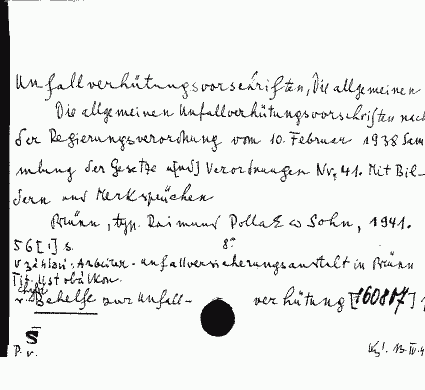 Unfallverhütungsvorschriften, Die allgemeinen
Die allgemeinen Unfallverhütungsvorschriften nach
der Regierungsverordnung vom 10. Februar 1938 Sam
mlung der Gesetze u[nd] Verordnungen Nr. 41. Mit Bil-
dern und Merksprüchen
Brünn, typ. Raimund Pollak & Sohn, 1941.
56 [1] s. 8°
V záhlaví: Arbeiter-unfallversicherungsanstalt in Brünn
Tit. list obálkou.
Behelfe zur Unfall- verhütung [160817]
S
P. v.